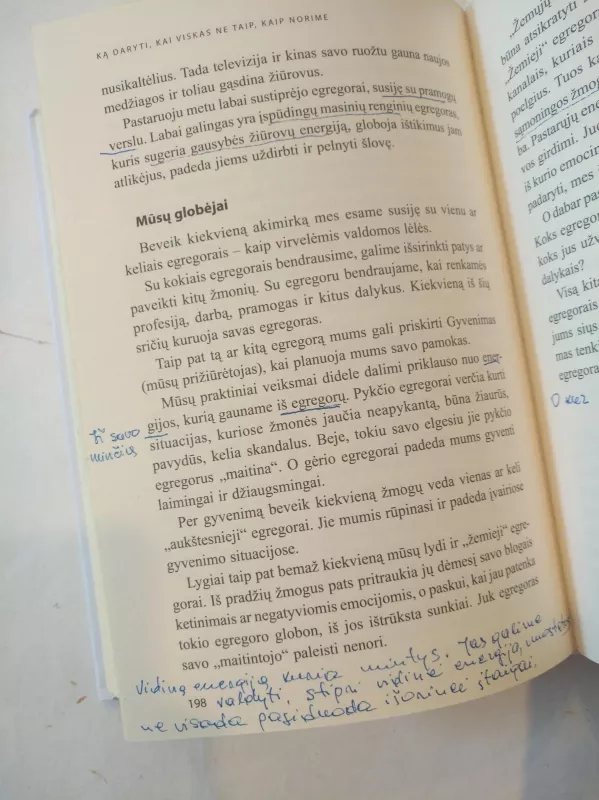 KĄ DARYTI, KAI VISKAS NE TAIP, KAIP NORIME
nusikaltėlius. Tada televizija ir kinas savo ruožtu gauna naujos
medžiagos ir toliau gąsdina žiūrovus.
Pastaruoju metu labai sustiprėjo egregorai, susiję su pramogų
verslu. Labai galingas yra įspūdingų masinių renginių egregoras,
kuris sugeria gausybės žiūrovų energiją, globoja ištikimus jam
atlikėjus, padeda jiems uždirbti ir pelnyti šlovę.
Mūsų globėjai
Beveik kiekvieną akimirką mes esame susiję su vienu ar
keliais egregorais – kaip virvelėmis valdomos lėlės.
Su kokiais egregorais bendrausime, galime išsirinkti patys ar
paveikti kitų žmonių. Su egregoru bendraujame, kai renkamės
profesiją, darbą, pramogas ir kitus dalykus. Kiekvieną iš šių
sričių kuruoja savas egregoras.
Taip pat tą ar kitą egregorą mums gali priskirti Gyvenimas
(mūsų prižiūrėtojas), kai planuoja mums savo pamokas.
Mūsų praktiniai veiksmai didele dalimi priklauso nuo ener-
gijos, kurią gauname iš egregorų. Pykčio egregorai verčia kurti
situacijas, kuriose žmonės jaučia neapykantą, būna žiaurūs,
pavydūs, kelia skandalus. Beje, tokiu savo elgesiu jie pykčio
egregorus „maitina“. O gėrio egregorai padeda mums gyventi
laimingai ir džiaugsmingai.
Per gyvenimą beveik kiekvieną žmogų veda vienas ar keli
„aukštesnieji“ egregorai. Jie mumis rūpinasi ir padeda įvairiose
gyvenimo situacijose.
Lygiai taip pat bemaž kiekvieną mūsų lydi ir „žemieji“ egre-
gorai. Iš pradžių žmogus pats pritraukia jų dėmesį savo blogais
ketinimais ar negatyviomis emocijomis, o paskui, kai jau patenka
tokio egregoro globon, iš jos ištrūksta sunkiai. Juk egregoras
savo „maitintojo“ paleisti nenori.
Iš savo
minčių
Vidinę energiją kuria mintys. Jas galime
valdyti, stipri vidinė energija
ne visada pasiduoda išorinei įtakai.
198
„Žemųjų
būna atsikratyti
„Žemieji“ egregor
kanalais, kuriais
poelgius. Tuos ka
sąmoningos žmog
ba. Pastarųjų en
vos girdimi. Juo
iš kurio emocin
padaryti, mes
O dabar pas
Koks egregor
koks jus užv
dalykais?
Visą kita
egregorais
jums siųs
mas tenki
egregora
O